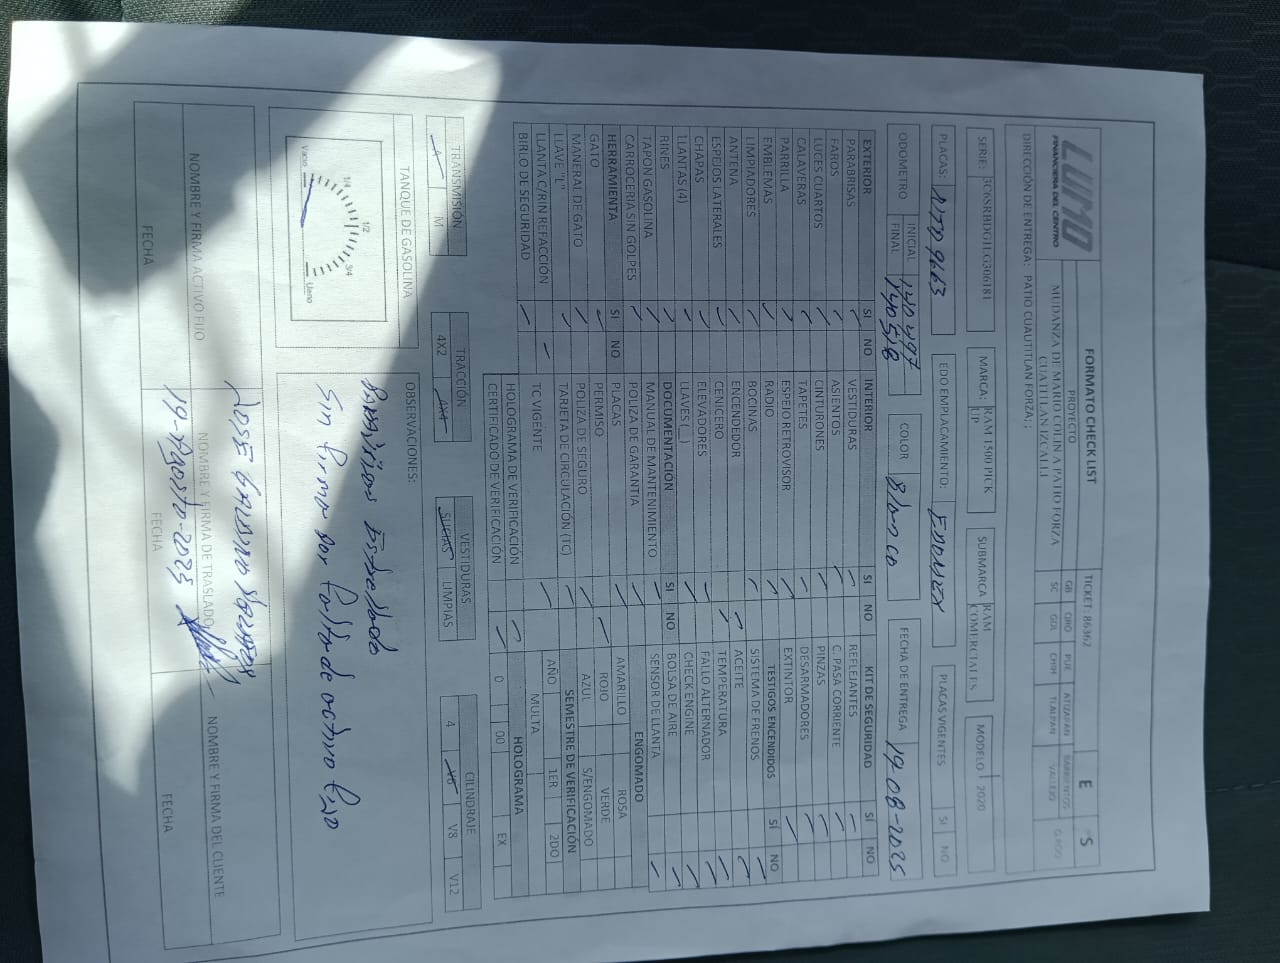 LUMO
FINANCIERA DEL CENTRO
FORMATO CHECK LIST
TICKET: 86362
E
S
PROYECTO
MUDANZA DE MARIO COLIN A PATIO FORZA
CUATITLAN IZCALLI
GB QRO PUE ATIZAPAN BARRIENTOS
SC GDL CHIH TLALPAN VALLEJO
DIRECCIÓN DE ENTREGA: PATIO CUAUTITLAN FORZA: ;
SERIE: 3C6SRBDG1LG306181
MARCA: RAM 1500 PICK UP
SUBMARCA RAM COMERCIALES
MODELO 2020
PLACAS:
EDO EMPLACAMIENTO: EDOMEX
PLACAS VIGENTES SI NO
ODOMETRO INICIAL 140497
FINAL 140518
COLOR Blanco
FECHA DE ENTREGA 19-08-2025
EXTERIOR SI NO
PARABRISAS
FAROS
LUCES CUARTOS
CALAVERAS
PARRILLA
EMBLEMAS
LIMPIADORES
ANTENA
ESPEJOS LATERALES
CHAPAS
LLANTAS (4)
RINES
TAPON GASOLINA
CARROCERIA SIN GOLPES
HERRAMIENTA SI NO
GATO
MANERAL DE GATO
LLAVE "L"
LLANTA C/RIN REFACCIÓN
BIRLO DE SEGURIDAD
INTERIOR SI NO
VESTIDURAS
ASIENTOS
CINTURONES
TAPETES
ESPEJO RETROVISOR
RADIO
BOCINAS
ENCENDEDOR
CENICERO
ELEVADORES
LLAVES (_)
DOCUMENTACIÓN SI NO
MANUAL DE MANTENIMIENTO
POLIZA DE GARANTIA
PLACAS
PERMISO
POLIZA DE SEGURO
TARJETA DE CIRCULACIÓN (TC)
TC VIGENTE
HOLOGRAMA DE VERIFICACIÓN
CERTIFICADO DE VERIFICACIÓN
KIT DE SEGURIDAD SI NO
REFLEJANTES
C. PASA CORRIENTE
PINZAS
DESARMADORES
EXTINTOR
TESTIGOS ENCENDIDOS SI NO
SISTEMA DE FRENOS
ACEITE
TEMPERATURA
FALLO ALTERNADOR
CHECK ENGINE
BOLSA DE AIRE
SENSOR DE LLANTA
ENGOMADO
AMARILLO ROSA
ROJO VERDE
AZUL S/ENGOMADO
SEMESTRE DE VERIFICACIÓN
AÑO 1ER 2DO
MULTA
HOLOGRAMA
0 00 EX
TRANSMISIÓN
A M
TRACCIÓN
4X2 4X4
VESTIDURAS
SUCIAS LIMPIAS
CILINDRAJE
4 V6 V8 V12
TANQUE DE GASOLINA
Vacio 1/4 1/2 3/4 Lleno
OBSERVACIONES:
Parabrisas Estrellado
Sin
por falta de
NOMBRE Y FIRMA ACTIVO FIJO
JOSE
NOMBRE Y FIRMA DE TRASLADO
NOMBRE Y FIRMA DEL CLIENTE
FECHA
19-Agosto-2025
FECHA
FECHA